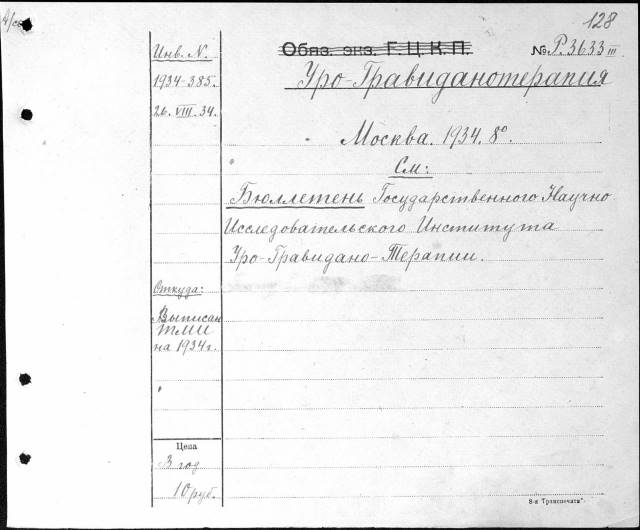 128
Инв. N.
Обяз. экз. Г.Ц.К.П.
№ Р.3633 III
1934-385.
Уро-Гравиданотерапия
26. VIII. 34.
Москва. 1934. 8°.
См:
Бюллетень Государственного Научно-
Исследовательского Института
Уро-Гравидано-Терапии.
Откуда:
Выписан
ТМИ
на 1934 г.
Цена
В год
10 руб.
8-я Транспечати".